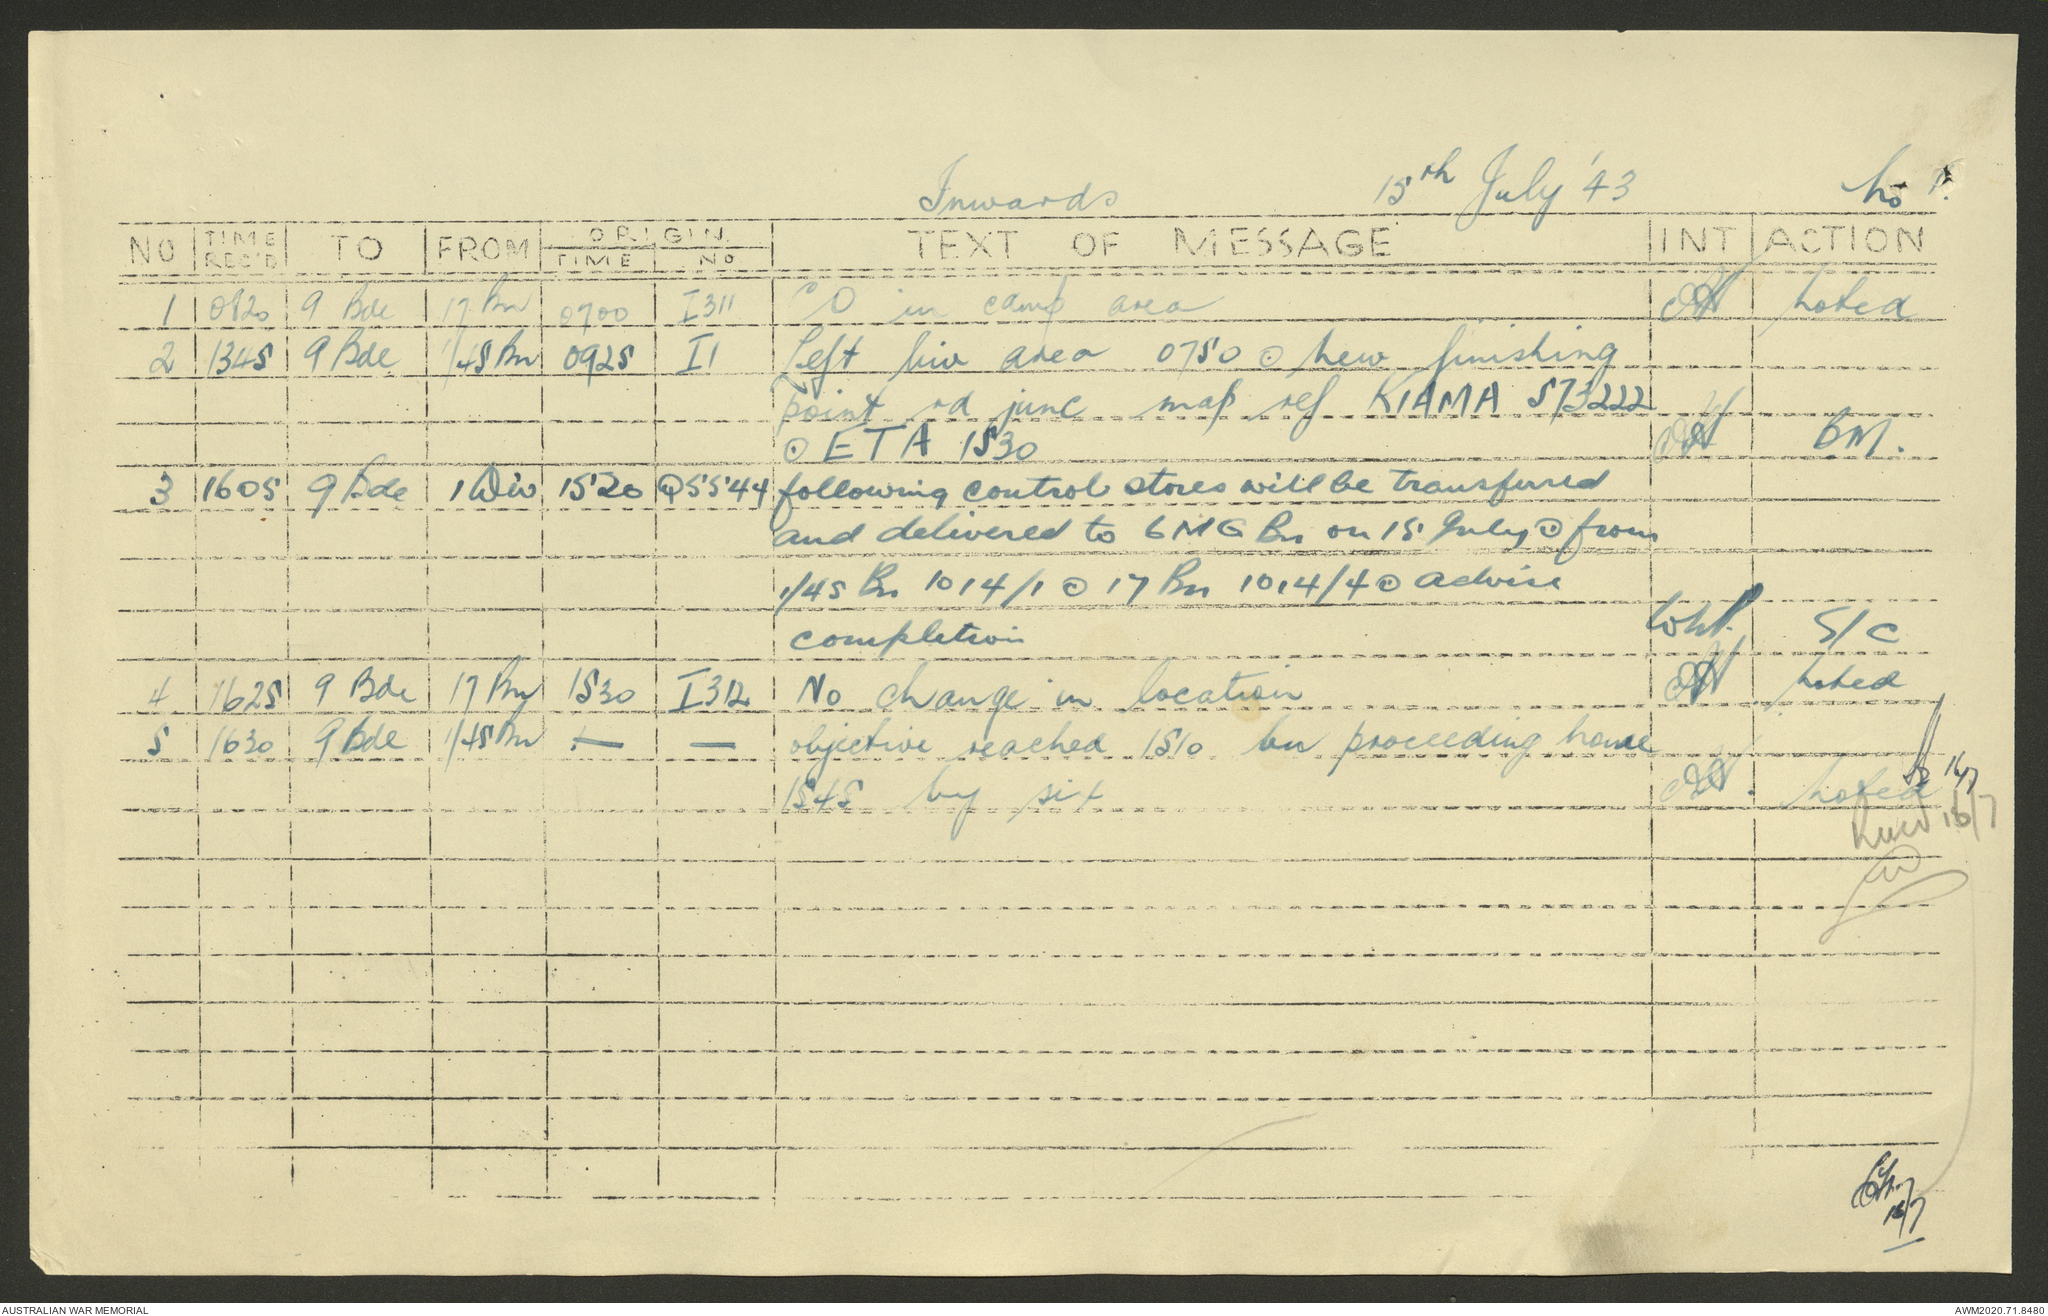 Inwards 15th July '43 No 1.
NO TIME REC'D TO FROM ORIGIN. TIME NO TEXT OF MESSAGE INT ACTION
1 0920 9 Bde 17 Bn 0700 I311 CO in camp area noted
2 1345 9 Bde 1/45 Bn 0925 I1 Left biv area 0750 ⊙ new finishing
point rd junc map ref KIAMA 573222
⊙ ETA 1530 BM.
3 1605 9 Bde 1 Div 1520 Q5544 following control stores will be transferred
and delivered to 6 MG Bn on 15 July ⊙ from
1/45 Bn 1014/1 ⊙ 17 Bn 1014/4 ⊙ advise
completion S/C
4 1625 9 Bde 17 Bn 1530 I312 No change in location noted
5 1630 9 Bde 1/45 Bn — — objective reached 1510 bn proceeding home
1545 by six noted
16/7
16/7
16/7
AUSTRALIAN WAR MEMORIAL AWM2020.71.8480